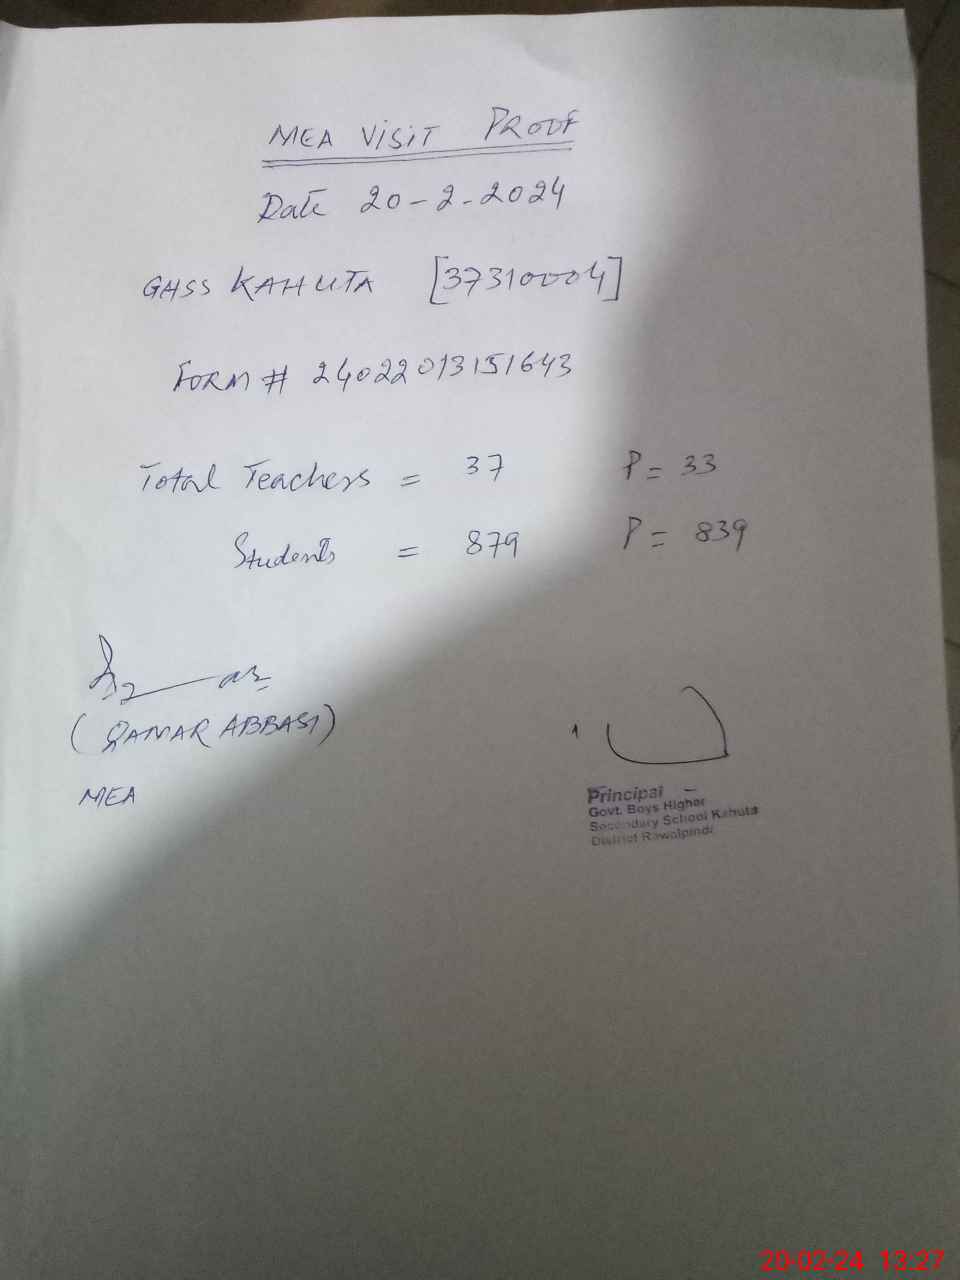 MEA VISIT PROOF
Date 20-2-2024
GHSS KAHUTA [37310004]
FORM # 24022013151643
Total Teachers = 37 P = 33
Students = 879 P = 839
(QAMAR ABBASI)
MEA
Principal
Govt. Boys Higher
Secondary School Kahuta
District Rawalpindi
20-02-24 13:27